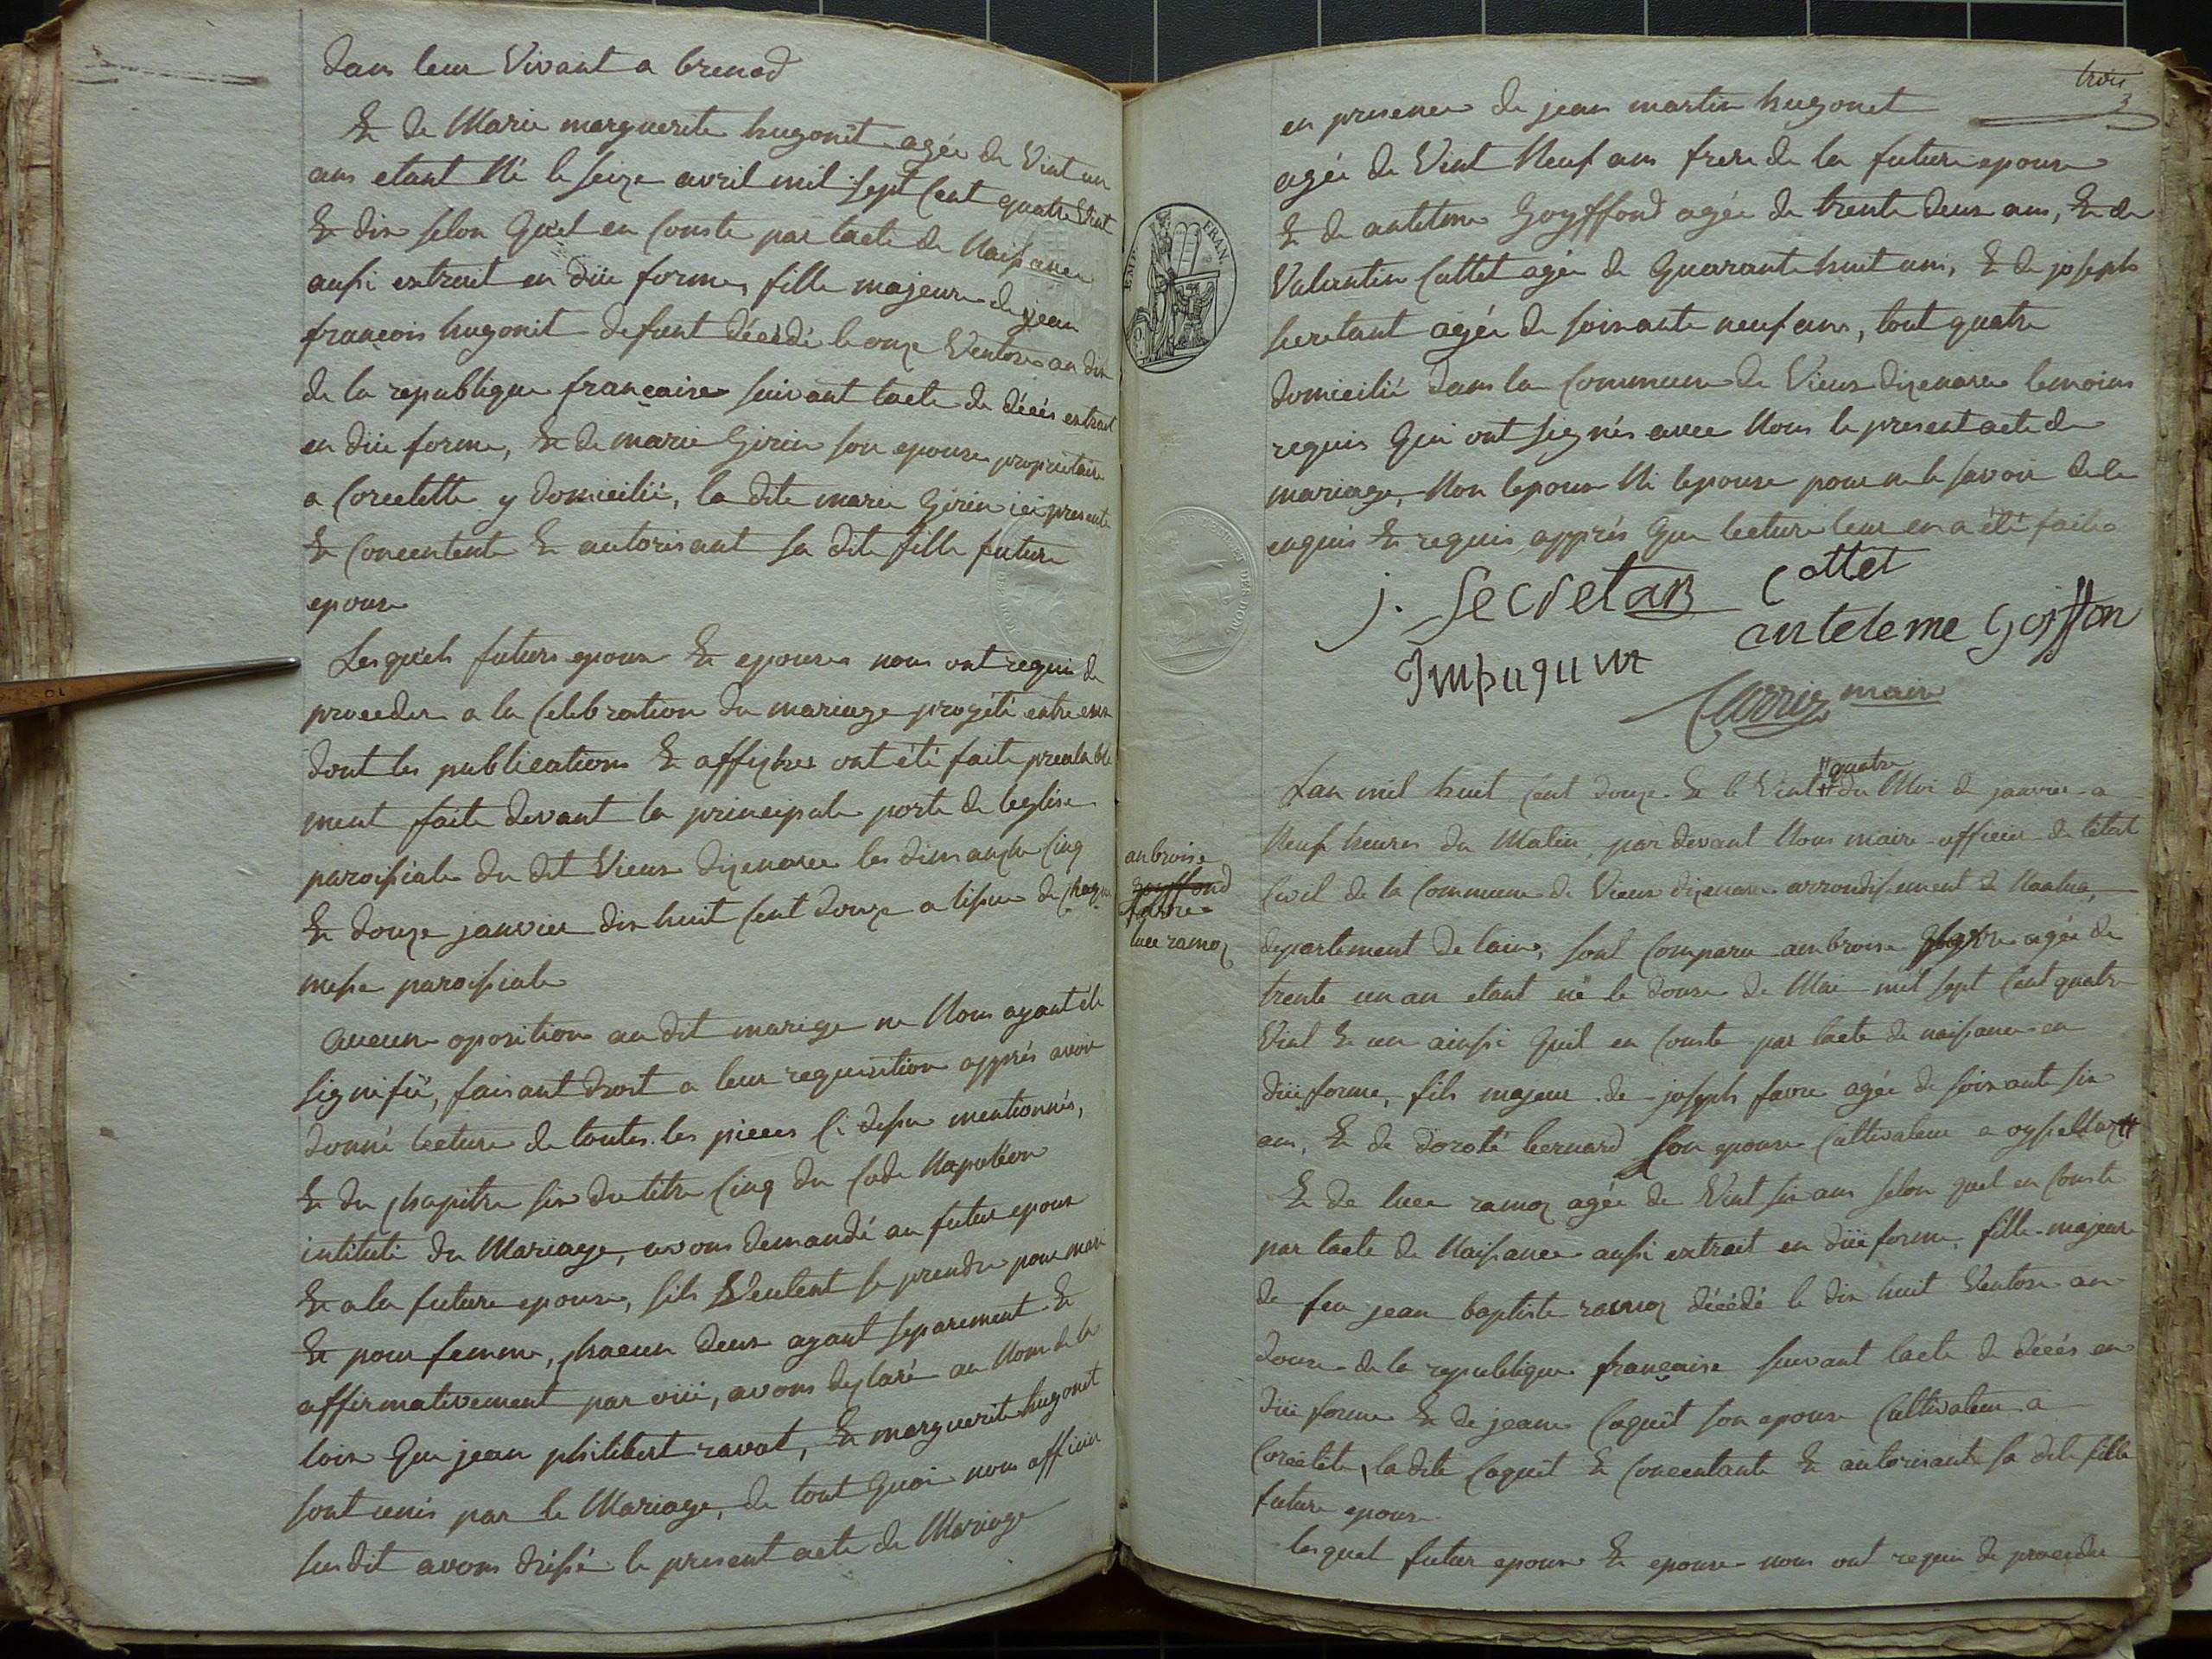 dans leur Vivant a brenod
Et de Marie marguerite hugonit agée de Vint un
ans etant Né le seize avril mil sept Cent quatre Vint
Et dix selon Quel en Conste par lacte de Naissance
aussi extrait en düe forme, fille majeure de jean
françois hugonit defunt décédé le onze Ventose an dix
de la republique française suivant lacte de décés extrait
en düe forme, Et de marie Girin son epouse propriétaire
a Corcelette y domicilié, la dite marie Girin ici presente
Et Concentente Et autorisant sa dite fille future
epouse
Lesquels futurs epoux Et epouses nous ont requis de
proceder a la Celebration du mariage progété entre eux
dont les publications Et affiches ont été faite prealable
ment faite devant la principale porte de leglise
paroissiale du dit Vieux dizenave les dimanche Cinq
Et douze janvier dix huit Cent douze a lissue de Chaque
messe paroissiale
aucune oposition au dit marige ne Nous ayant été
signifié, faisant droit a leur requisition apprés avoir
donné lecture de toutes les pieces Ci dessu mentionnés,
Et du Chapitre six du titre Cinq du Code Napoléon
intitulé du Mariage, avons demandé au futur epoux
Et a la future epouse, sils Veulent se prendre pour mari
Et pour femme, Chacun deux ayant separement Et
affirmativement par oüi, avons declaré au Nom de la
loix Que jean philibert ravat, Et marguerite hugonet
sont unis par le Mariage, de tout Quoi nous officier
susdit avons dréssé le present acte de Mariage
trois
3
en presence de jean martin hugonet
agée de Vint Neuf ans frere de la future epouse
Et de antelme Goyffond agée de trente deux ans, Et de
Valantin Cattet agée de Quarante huit ans, Et de joseph
secretant agée de soixante neuf ans, tout quatre
domicilié dans la Commune de Vieux dizenave temoins
requis Qui ont signés avec Nous le present acte de
mariage, Non lepoux Ni lepouse pour ne le savoir de ce
enquis Et requis apprés Que lecture leur en a été faite
j. Secretan Cattet
anteleme Goiffon
Carrier maire
Lan mil huit Cent douze Et le Vint quatre du Moi de janvier a
Neuf heures du Matin, par devant Nous maire officier de létat
Civil de la Commune de Vieux dizenave arrondissement de Nantua,
ambroise
goyffond
favre
luce ramoz
departement de lain, sont Comparu ambroise favre agée de
trente un an etant né le douze de Mai mil sept Cent quatre
Vint Et un ainsi Quil en Conste par lacte de naissance en
düe forme, fils majeur de joseph favre agée de soixante six
ans, Et de doroté bernard son epouse Cultivateur a oysellaz
Et de luce ramoz agée de Vint six ans selon quel en Conste
par lacte de Naissance aussi extrait en düe forme, fille majeure
de feu jean baptiste ramoz décédé le dix huit Ventose an
douze de la republique française suivant lacte de décés en
düe forme Et de jeanne Coquet son epouse Cultivateur a
Corcelete, la dite Coquet Et Concentante Et autorisante sa dite fille
future epouse
lesquel futur epoux Et epouse nous ont requis de proceder